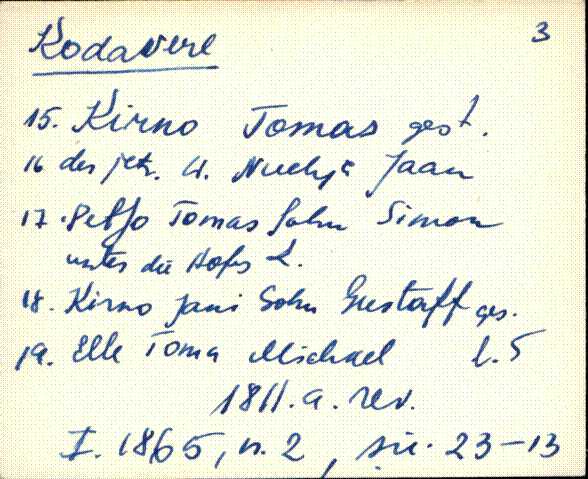 Kodavere 3
15. Kirno Tomas gest.
16 der jetz. W. Jaan
17. Tomas Sohn Simon
unter die Hofs L.
18. Kirno Jani Sohn Gustaff ges.
19. Elle Toma Michael l. 5
1811. a. rev.
I. 1865, n. 2, 23-13